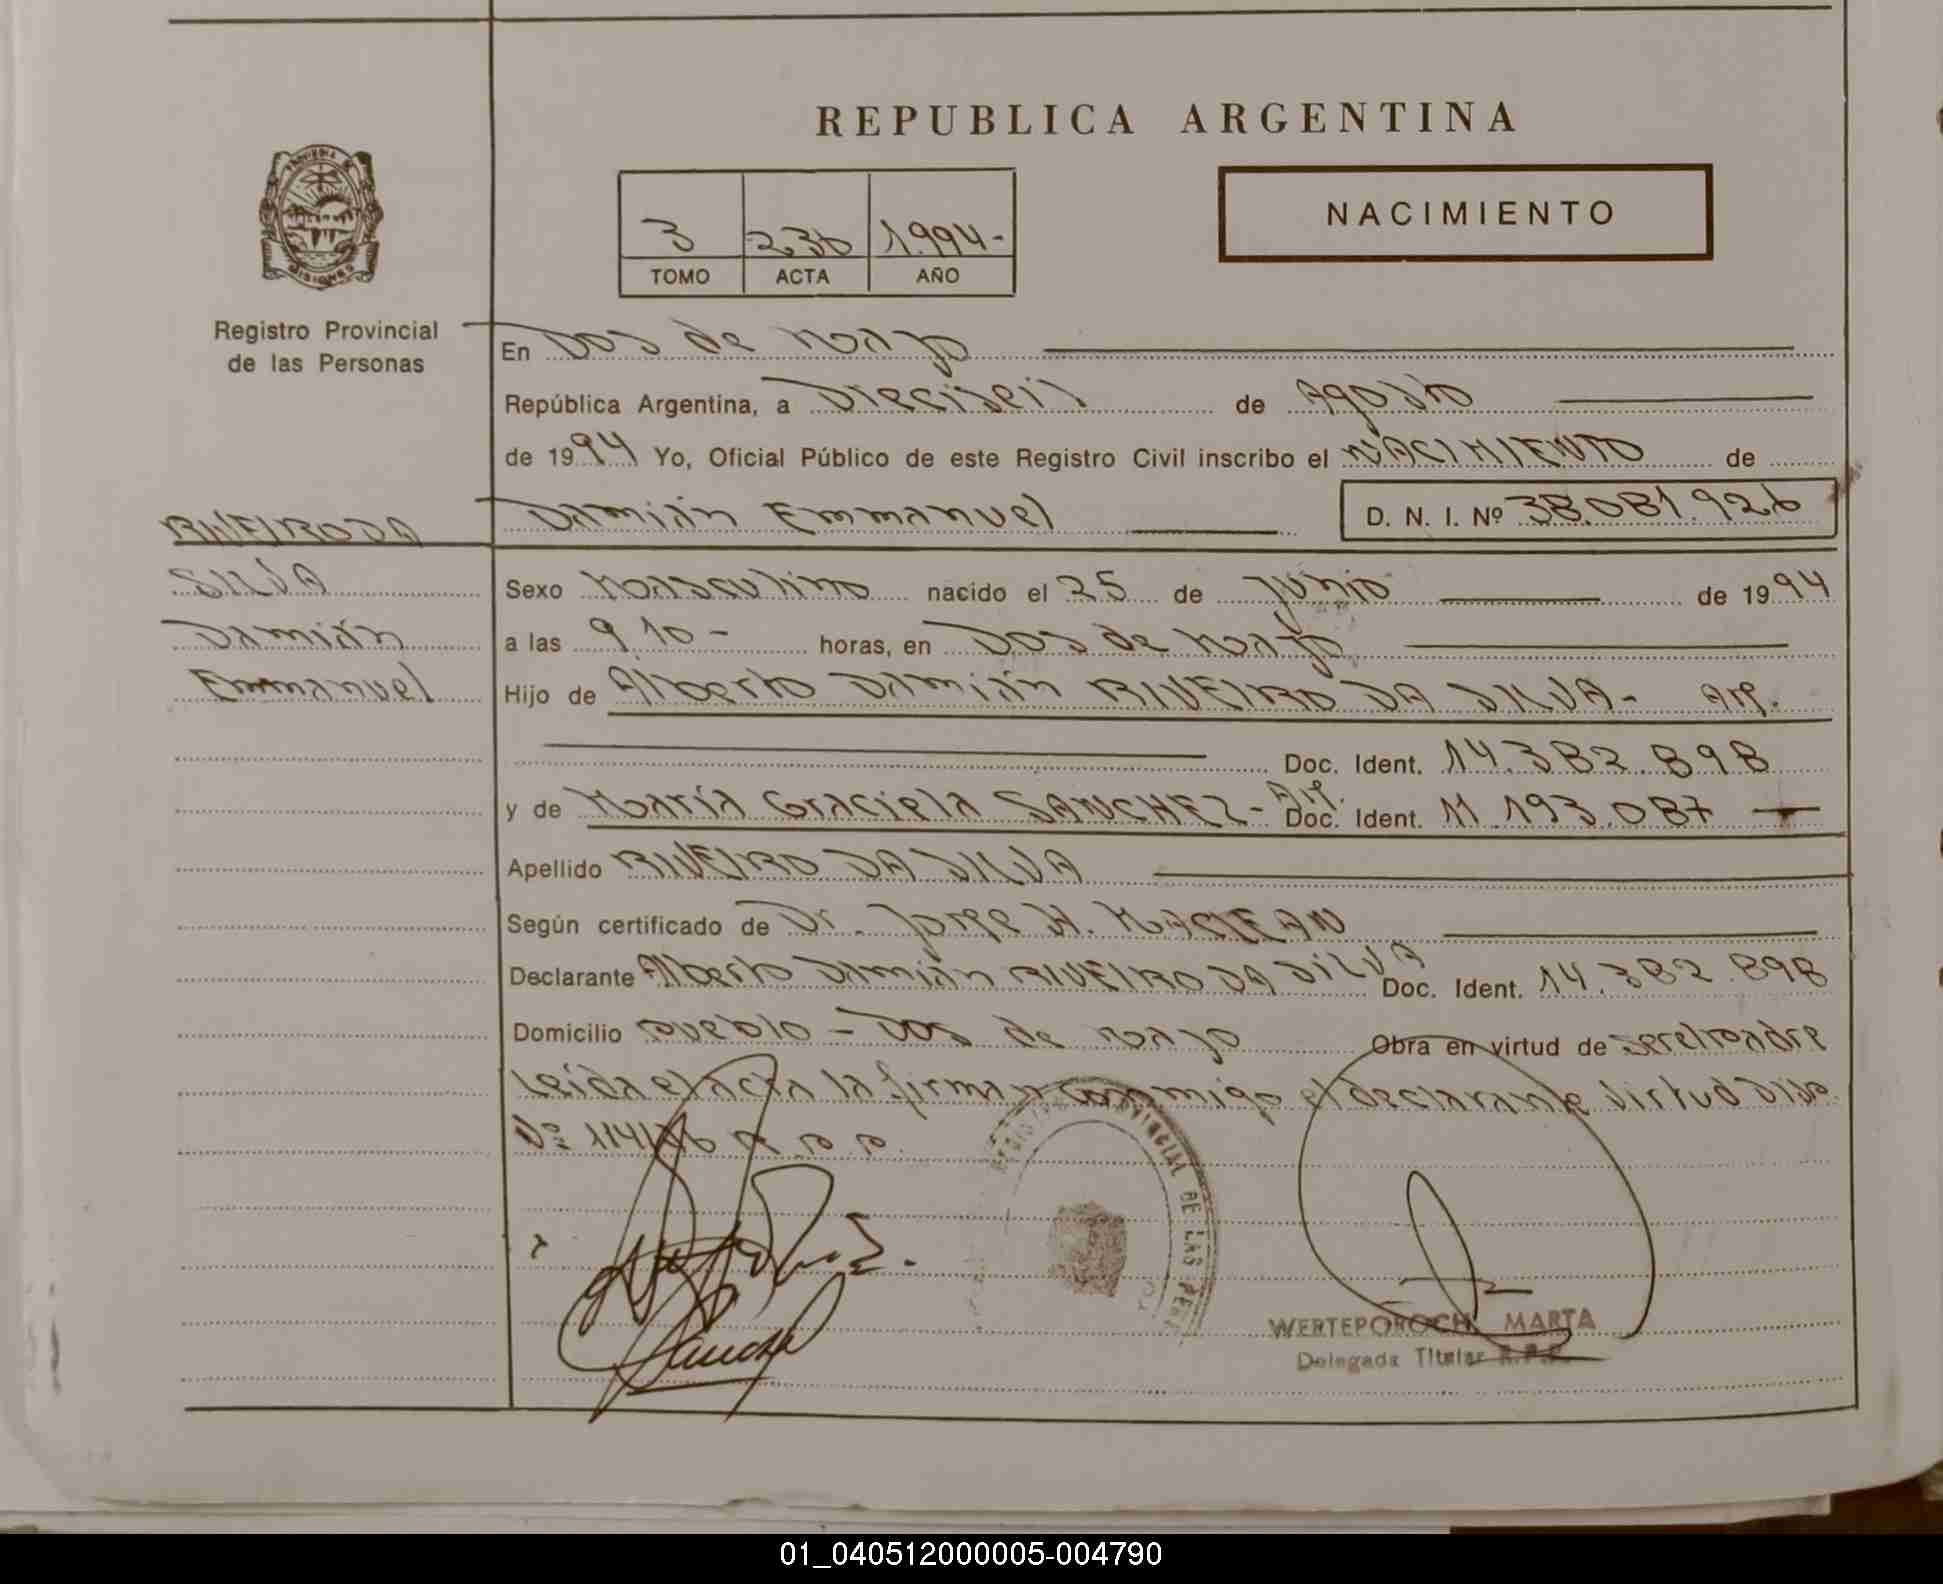 REPUBLICA ARGENTINA
NACIMIENTO
3 236 1.994-
TOMO ACTA AÑO
Registro Provincial
de las Personas
En Dos de Mayo
República Argentina, a Dieciseis de Agosto
de 1994 Yo, Oficial Público de este Registro Civil inscribo el NACIMIENTO de
Damián Emmanuel D. N. I. Nº 38.081.926
RIVEIRO DA
SILVA
Damián
Emmanuel
Sexo Masculino nacido el 25 de Junio de 1994
a las 9 10 - horas, en Dos de Mayo
Hijo de Alberto Damián RIVEIRO DA SILVA- Arg.
Doc. Ident. 14.382.898
y de María Graciela SANCHEZ- Arg. Doc. Ident. 11.193.087
Apellido RIVEIRO DA SILVA
Según certificado de Dr. Jorge H. MACLEAN
Declarante Alberto Damián RIVEIRO DA SILVA Doc. Ident. 14.382.898
Domicilio Pueblo - Dos de Mayo Obra en virtud de ser el padre
Leída el acta la firman conmigo el declarante virtud Disp.
Nº
REGISTRO PROVINCIAL DE LAS PER
Sanchez
WERTEPOROCH MARTA
Delegada Titular R.P.P.
01_040512000005-004790